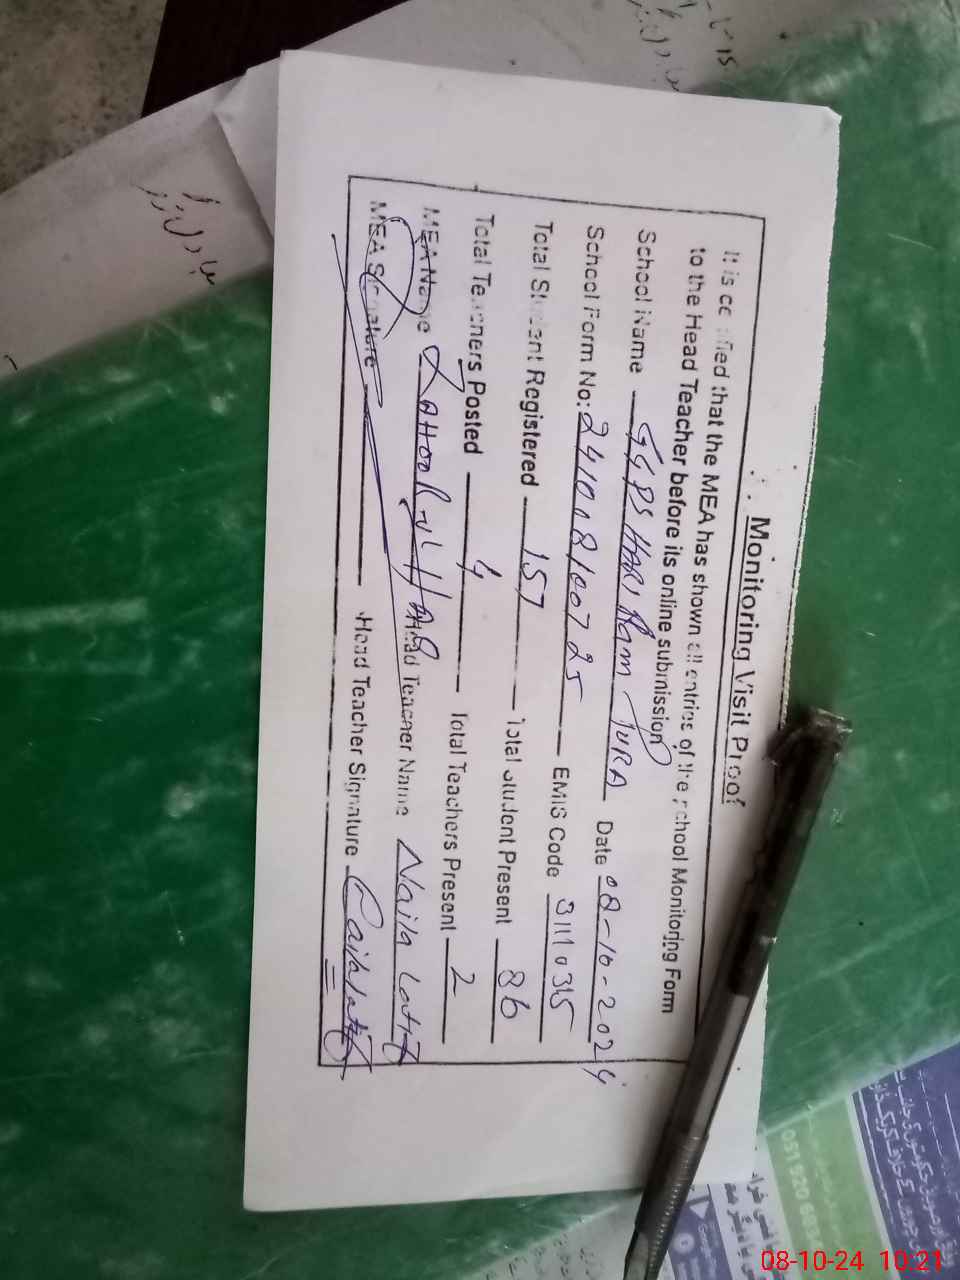 Monitoring Visit Proof
It is certified that the MEA has shown all entries of the School Monitoring Form
to the Head Teacher before its online submission
School Name GGPS HARI RAM PURA Date 08-10-2024
School Form No: 241008100725 EMIS Code
Total Student Registered 157 Total Student Present 86
Total Teachers Posted 4 Total Teachers Present 2
MEA Name ZAHOOR-ul-HAQ Head Teacher Name Naila Latif
MEA Signature Head Teacher Signature Naila Latif
08-10-24 10:21